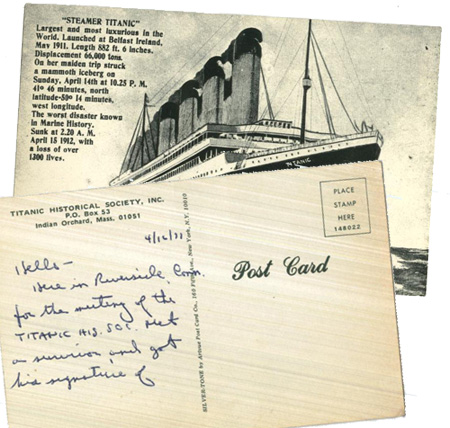 "STEAMER TITANIC"
Largest and most luxurious in the
World. Launched at Belfast Ireland,
May 1911. Length 882 ft. 6 inches.
Displacement 66,000 tons.
On her maiden trip struck
a mammoth iceberg on
Sunday, April 14th at 10.25 P. M.
41º 46 minutes, north
latitude-50º 14 minutes,
west longitude.
The worst disaster known
in Marine History.
Sunk at 2.20 A. M.
April 15 1912, with
a loss of over
1300 lives.
TITANIC
TITANIC HISTORICAL SOCIETY, INC.
P.O. Box 53
Indian Orchard, Mass. 01051
4/12/
Hello-
Here in Riverside, Conn.
for the meeting of the
TITANIC HIS. SOC. Met
a survivor and got
his signature of
SILVER-TONE by Artvue Post Card Co., Fifth Ave., New York, N.Y. 10010
Post Card
PLACE
STAMP
HERE
148022